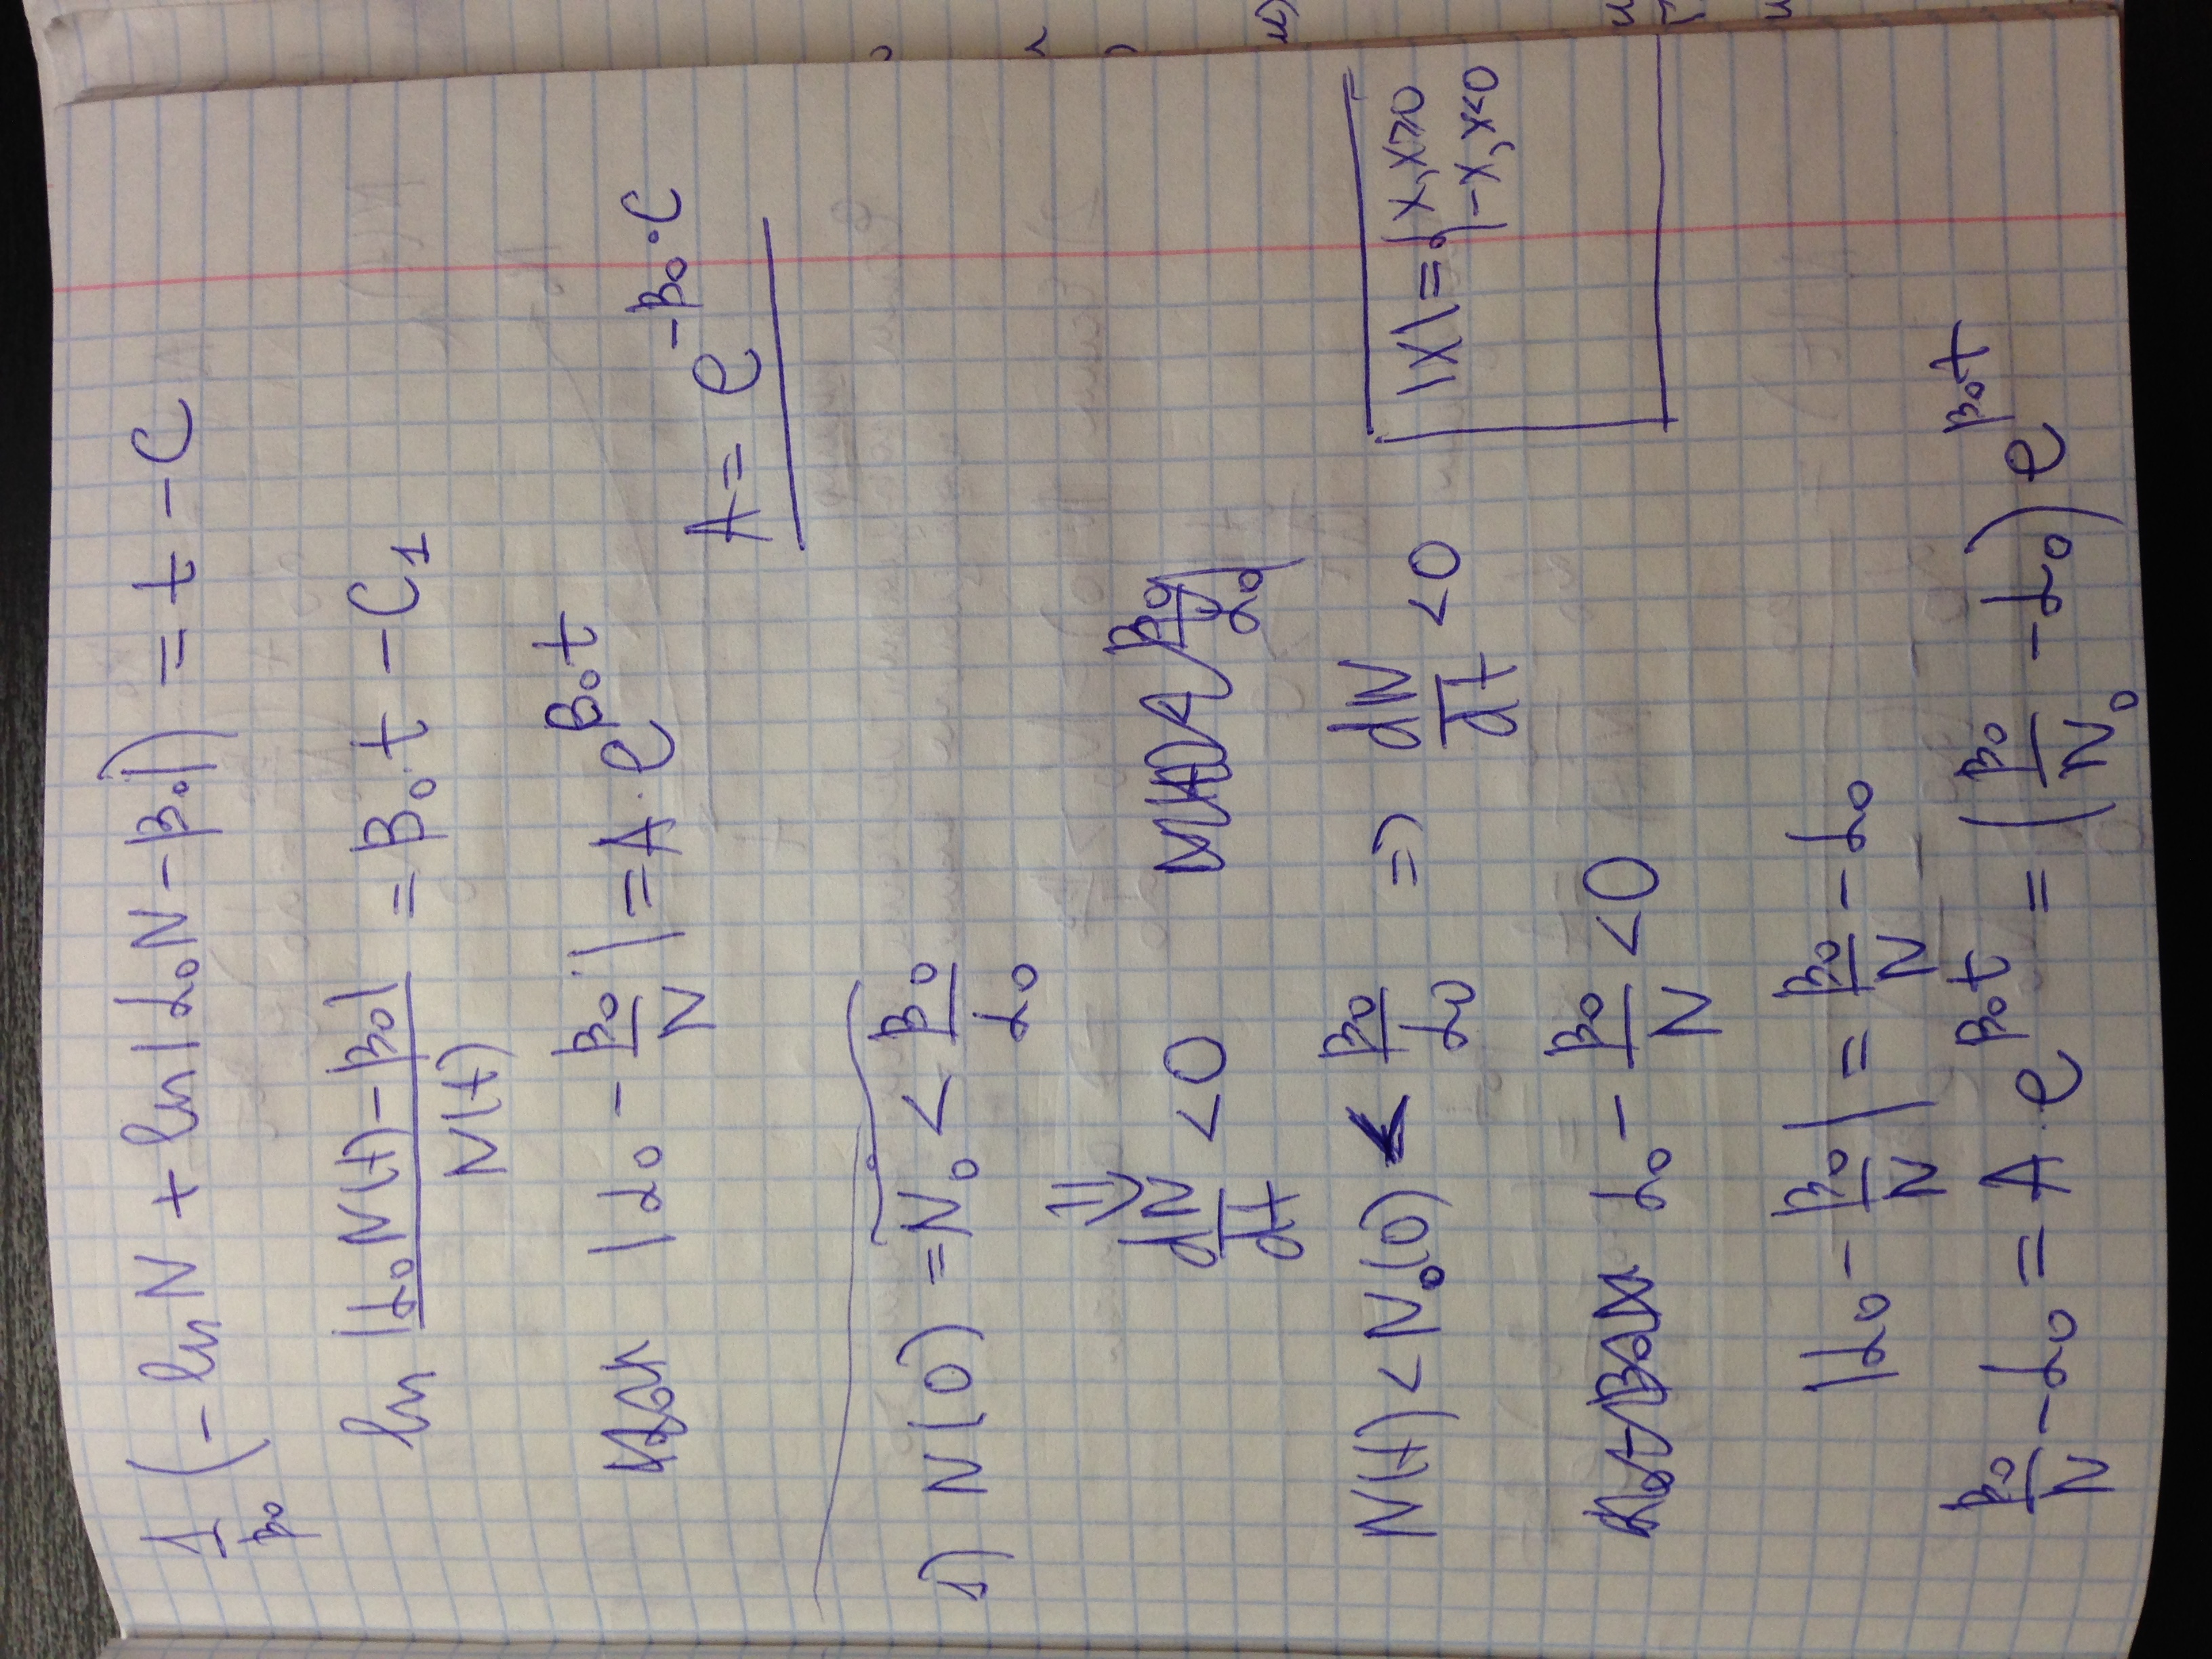 1/β₀ (- ln N + ln |α₀N - β₀|) = t - C
ln |α₀N(t) - β₀| / N(t) = β₀·t - C₁
|α₀ - β₀/N| = A·e^(β₀t)
A = e^(-β₀·C)
1) N(0) = N₀ < β₀/α₀
⇓
dN/dt < 0
N(t) < N₀(0) < β₀/α₀ => dN/dt < 0
|X| = { X, X≥0
-X, X<0
α₀ - β₀/N < 0
|α₀ - β₀/N| = β₀/N - α₀
β₀/N - α₀ = A·e^(β₀t) = (β₀/N₀ - α₀) e^(β₀t)